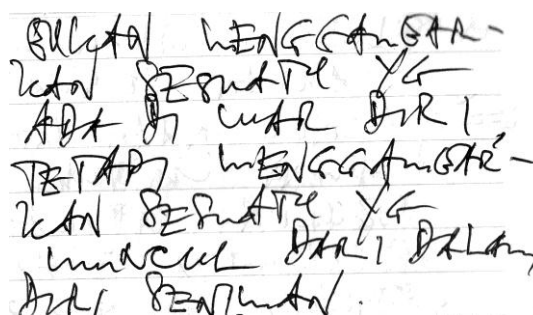 BUKAN MENGGAMBAR-
KAN SESUATU YG
ADA DI LUAR DIRI
TETAPI MENGGAMBAR-
KAN SESUATU YG
MUNCUL DARI DALAM
DIRI SENIMAN.